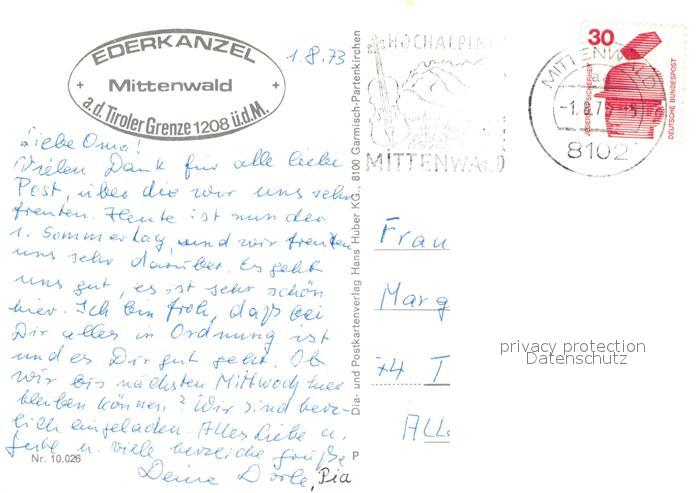 EDERKANZEL
Mittenwald
a.d. Tiroler Grenze 1208 ü.d.M.
1.8.73
Liebe Oma!
Vielen Dank für alle liebe
Post, über die wir uns sehr
freuten. Heute ist nun der
1. Sommertag, und wir freuten
uns sehr darüber. Es geht
uns gut, es ist sehr schön
hier. Ich bin froh, daß bei
Dir alles in Ordnung ist
und es Dir gut geht. Ob
wir bis nächsten Mittwoch hier
bleiben können? Wir sind herz-
lich eingeladen. Alles Liebe u.
Gute u. viele herzliche Grüße
Deine Dorle, Pia
Nr. 10.026
Dia- und Postkartenverlag Hans Huber KG., 8100 Garmisch-Partenkirchen
P
HOCHALPIN
MITTENWALD
MITTENWALD
-1.8.73
8102
30
DEUTSCHE BUNDESPOST
Frau
Marg
74 T
All
privacy protection
Datenschutz